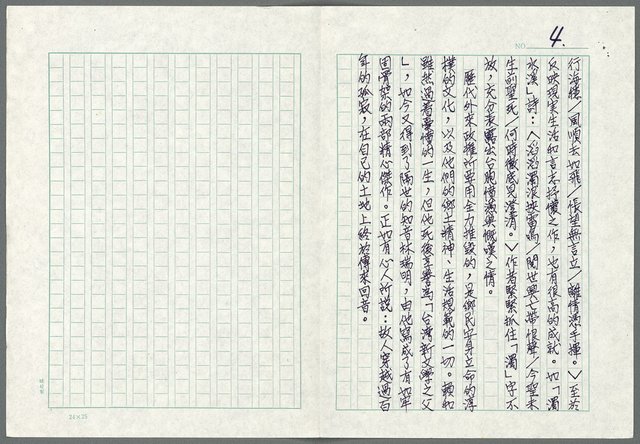 NO 4.
行海億/風順去如飛/悵望無言立/離情憑手揮。〉至於
反映現實生活和言志抒懷之作,也有很高的成就。如「濁
水溪」詩:〈滔滔濁浪挾雷鳴/閱世興亡帶恨聲/今聖未
生前聖死/何時徹底見澄清。〉作者緊緊抓住「濁」字不
放,充分表露出台胞憤滿與慨嘆之情。
歷代外來政權所要用全力摧毀的,是鄉民安身立命的淳
樸的文化,以及他們的鄉土精神、生活規範的一切。賴和
雖然過著憂憤的一生,但他死後享譽為「台灣新文學之父
」,如今又得到了隔世的知音林瑞明,由他寫成了有如牢
固骨架的兩部精心傑作。正如有心人所說:故人穿越過百
年的孤寂,在自己的土地上終於傳來回音。
24×25